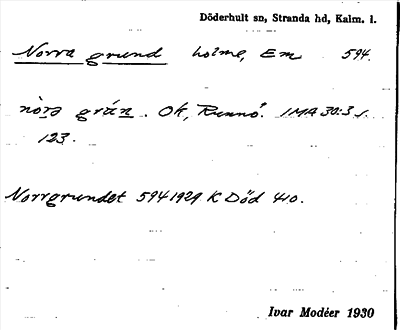 Döderhult sn, Stranda hd, Kalm. l.
Norra grund holme, Em 594.
nòrə grún. Ok, Runnö. IMA 30:3 s.
123.
Norrgrundet 594 1929 K Död 410.
Ivar Modéer 1930